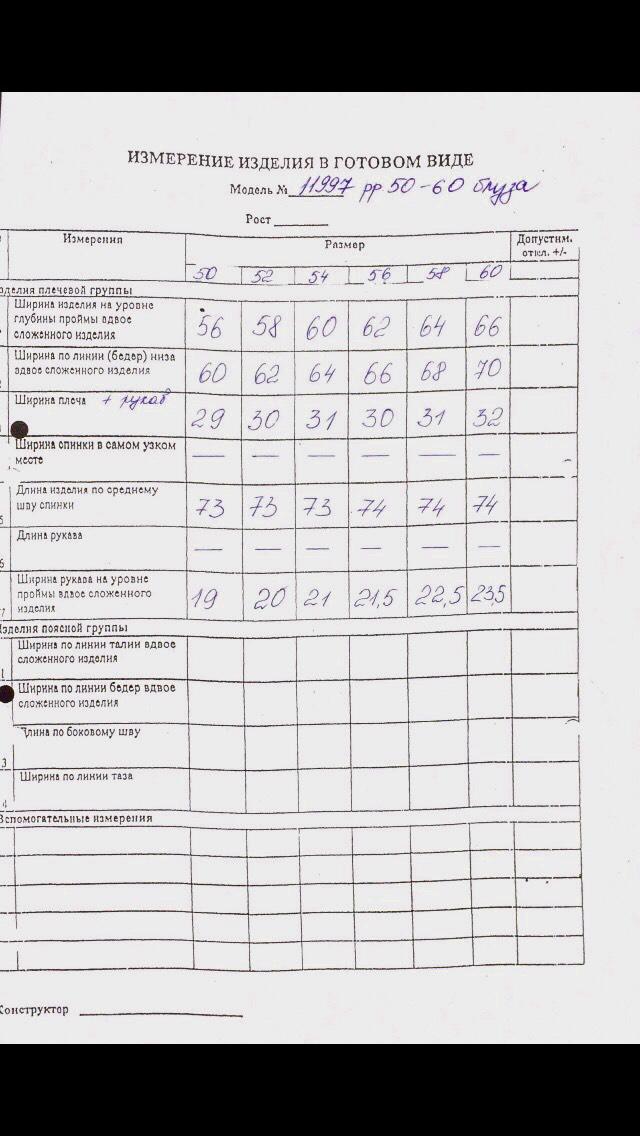 ИЗМЕРЕНИЕ ИЗДЕЛИЯ В ГОТОВОМ ВИДЕ
Модель № 11997 рр 50-60 блуза
Рост
Измерения Размер Допустим. откл. +/-
50 52 54 56 58 60
зделия плечевой группы
Ширина изделия на уровне
глубины проймы вдвое
сложенного изделия
56 58 60 62 64 66
Ширина по линии (бедер) низа
вдвое сложенного изделия
60 62 64 66 68 70
Ширина плеча + рукав
29 30 31 30 31 32
Ширина спинки в самом узком
месте
— — — — — —
5 Длина изделия по среднему
шву спинки
73 73 73 74 74 74
6 Длина рукава
— — — — — —
7 Ширина рукава на уровне
проймы вдвое сложенного
изделия
19 20 21 21,5 22,5 23,5
Изделия поясной группы
1 Ширина по линии талии вдвое
сложенного изделия
Ширина по линии бедер вдвое
сложенного изделия
3 Длина по боковому шву
4 Ширина по линии таза
Вспомогательные измерения
Конструктор